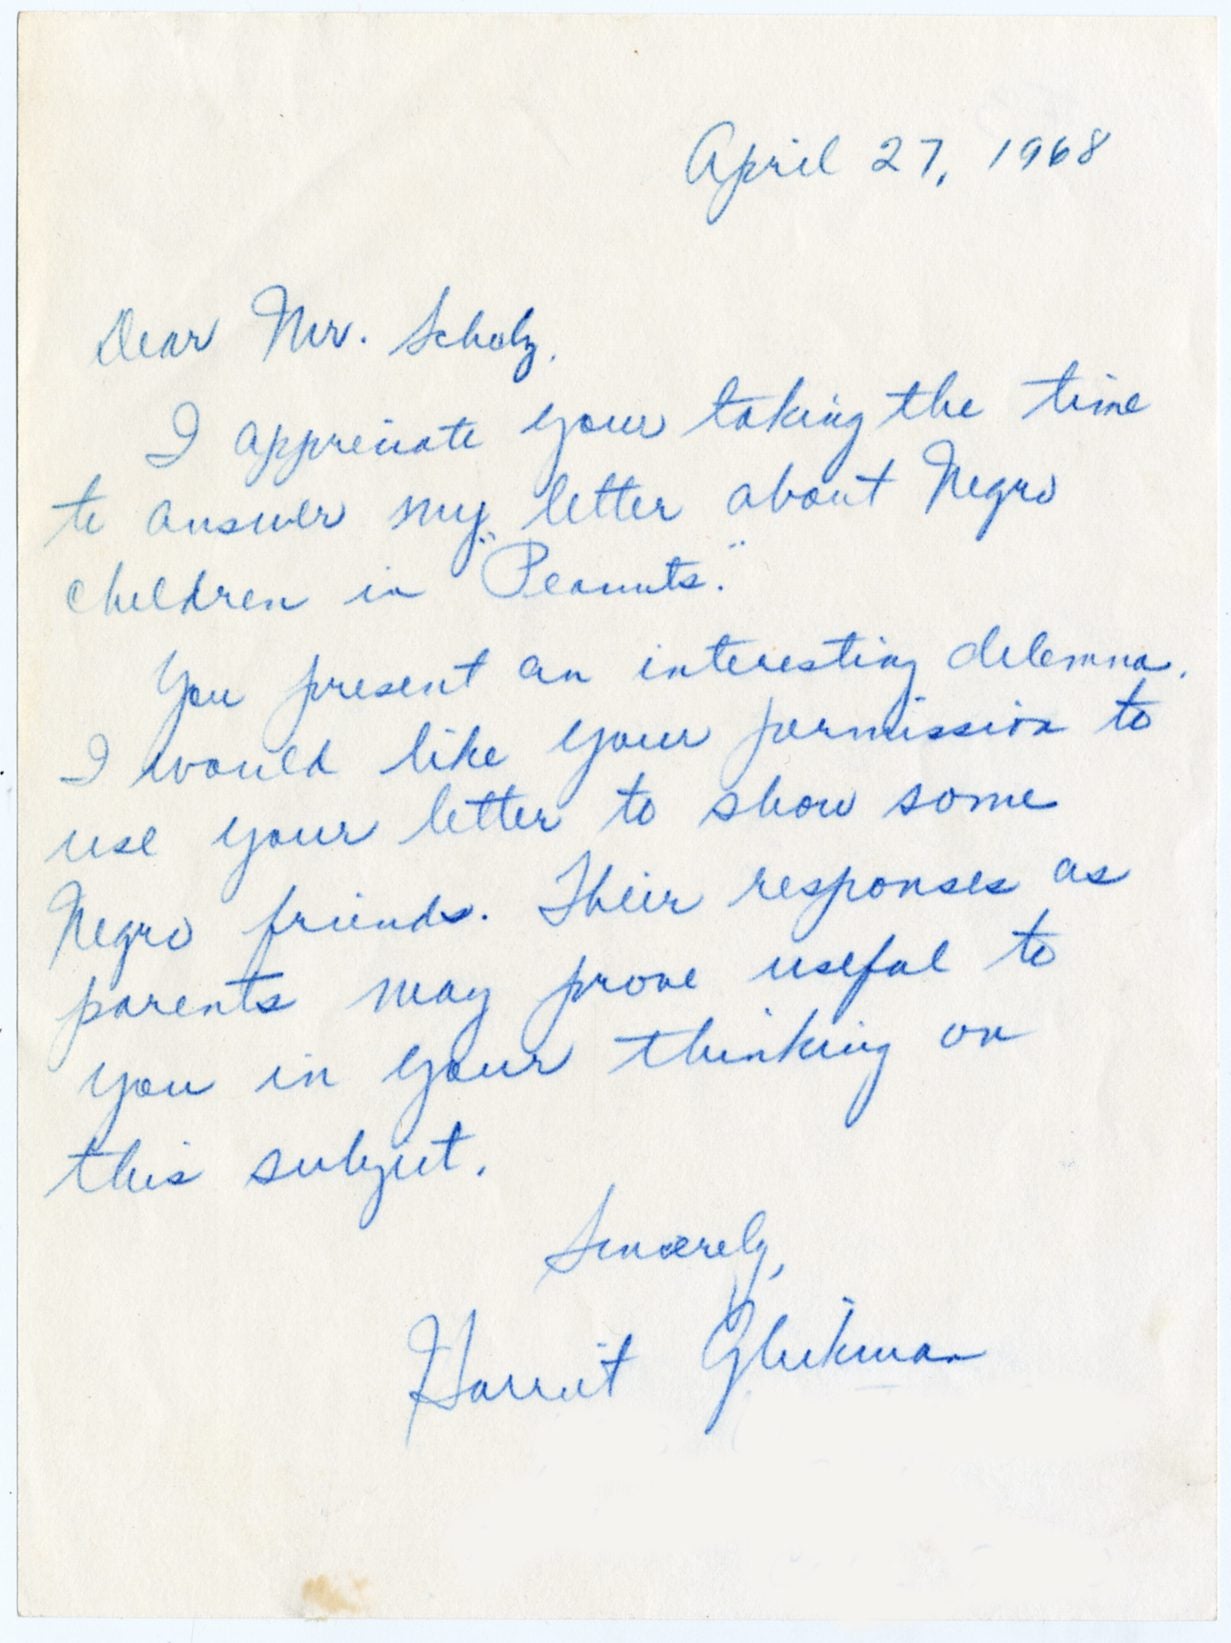 April 27, 1968
Dear Mr. Scholz,
I appreciate your taking the time
to answer my letter about Negro
children in "Peanuts."
You present an interesting dilemna.
I would like your permission to
use your letter to show some
Negro friends. Their responses as
parents may prove useful to
you in your thinking on
this subject.
Sincerely,
Harriet Glickman